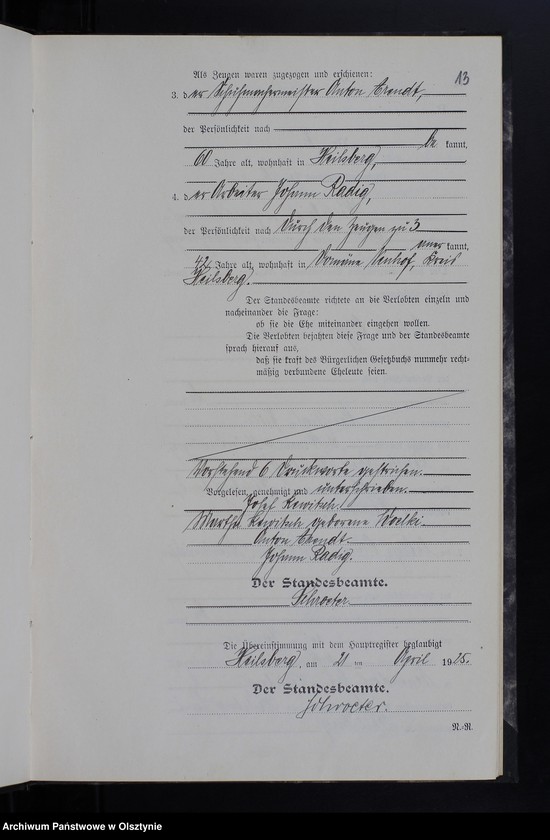 13
Als Zeugen waren zugezogen und erschienen:
3. der Schuhmachermeister Anton Arendt,
der Persönlichkeit nach
be kannt,
60 Jahre alt, wohnhaft in Heilsberg,
4. der Arbeiter Johann Radig,
der Persönlichkeit nach durch den Zeugen zu 3
aner kannt,
42 Jahre alt, wohnhaft in Domäne Neuhof, Kreis
Heilsberg.
Der Standesbeamte richtete an die Verlobten einzeln und
nacheinander die Frage:
ob sie die Ehe miteinander eingehen wollen.
Die Verlobten bejahten diese Frage und der Standesbeamte
sprach hierauf aus,
daß sie kraft des Bürgerlichen Gesetzbuchs nunmehr recht-
mäßig verbundene Eheleute seien.
Vorstehend 6 Druckworte gestrichen.
Vorgelesen, genehmigt und unterschrieben.
Josef Kewitsch.
Martha Kewitsch geborene Woelki
Anton Arendt.
Johann Radig.
Der Standesbeamte.
Schroeter
Die Übereinstimmung mit dem Hauptregister beglaubigt
Heilsberg, am 21 ten April 1925.
Der Standesbeamte.
Schroeter.
N.-R.
Archiwum Państwowe w Olsztynie